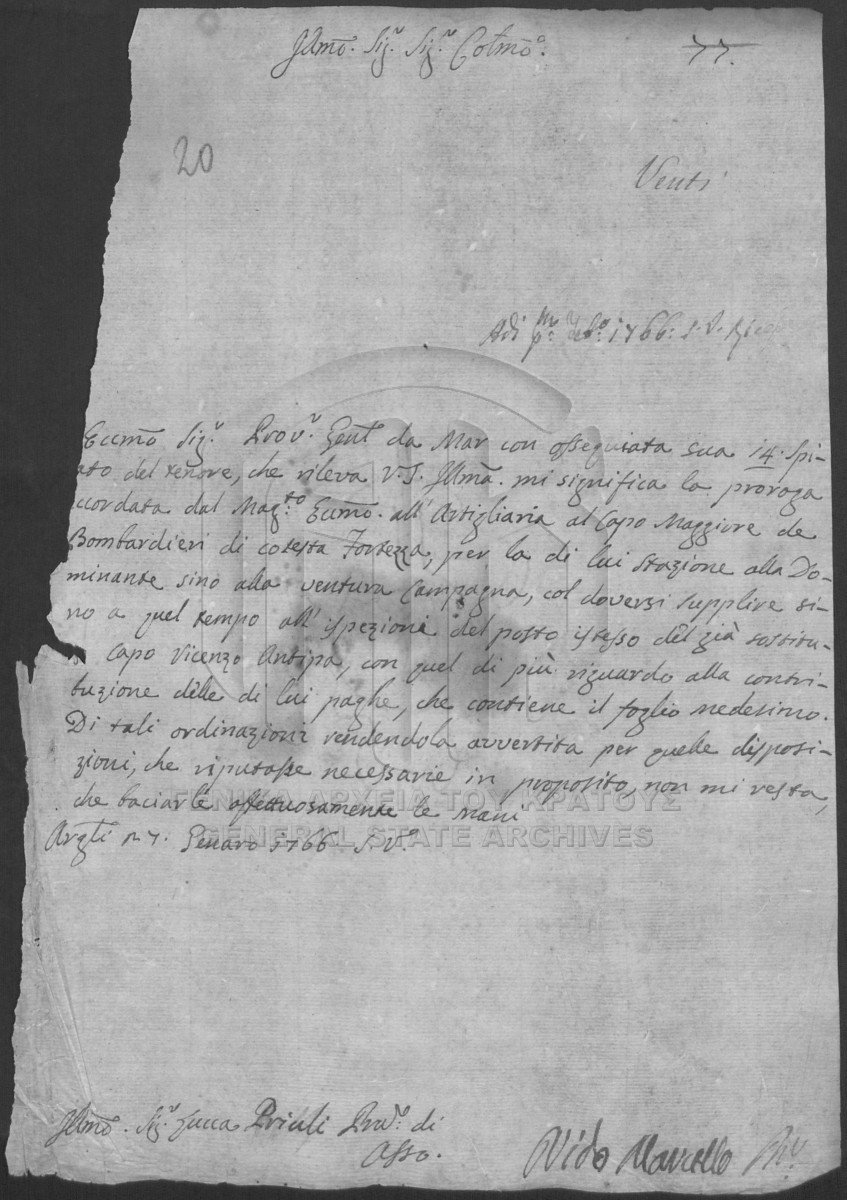 Illmo. Sig.r Sig.r Colmo.
77.
20
Venti
Adi p.mo Feb.o 1766: S.V.
Eccmo Sig.r Prov.r Genl da Mar con ossequiata sua 14. Spi-
ato del tenore, che rileva V.S. Illma. mi significa la proroga
ccordata dal Mag.to Eccmo. all'Artigliaria al Capo Maggiore de
Bombardieri di cotesta Fortezza, per la di lui stazione alla Do-
minante sino alla ventura Campagna, col doversi supplire si-
no a quel tempo all'ispezioni del posto istesso dèl già sostitu-
Capo Vicenzo Antipa, con quel di più riguardo alla contri-
buzione dèlle di lui paghe, che contiene il foglio medesimo.
Di tali ordinazioni rendendola avvertita per quelle disposi-
zioni, che riputasse necessarie in proposito, non mi resta,
che baciarle affettuosamente le mani
Argli 27: Genaro 1766 S.V.o
ΓΕΝΙΚΑ ΑΡΧΕΙΑ ΤΟΥ ΚΡΑΤΟΥΣ
GENERAL STATE ARCHIVES
Illmo. Sig.r Zucca Priuli Prov.r di
Asso.
Vido Marcello Prv.r